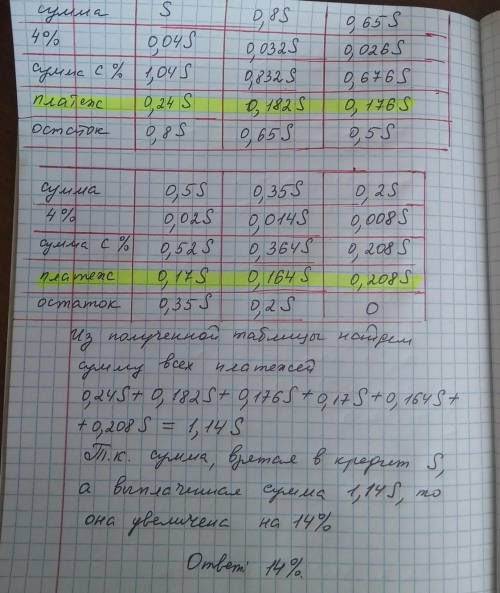 сумма S 0,8S 0,65S
4% 0,04S 0,032S 0,026S
сумма с % 1,04S 0,832S 0,676S
платеж 0,24S 0,182S 0,176S
остаток 0,8S 0,65S 0,5S
сумма 0,5S 0,35S 0,2S
4% 0,02S 0,014S 0,008S
сумма с % 0,52S 0,364S 0,208S
платеж 0,17S 0,164S 0,208S
остаток 0,35S 0,2S 0
Из полученной таблицы найдем
сумму всех платежей
0,24S + 0,182S + 0,176S + 0,17S + 0,164S +
+ 0,208S = 1,14S
Т.к. сумма, взятая в кредит S,
а выплаченная сумма 1,14S, то
она увеличена на 14%
Ответ: 14%.